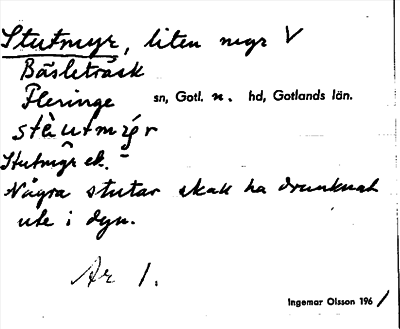 Stutmyr, liten myr V
Bäsleträsk
Fleringe sn, Gotl. n. hd, Gotlands län.
stèutmyr
Stutmyr ek.
Några stutar skall ha drunknat
ute i dyn.
Ar 1.
Ingemar Olsson 1961